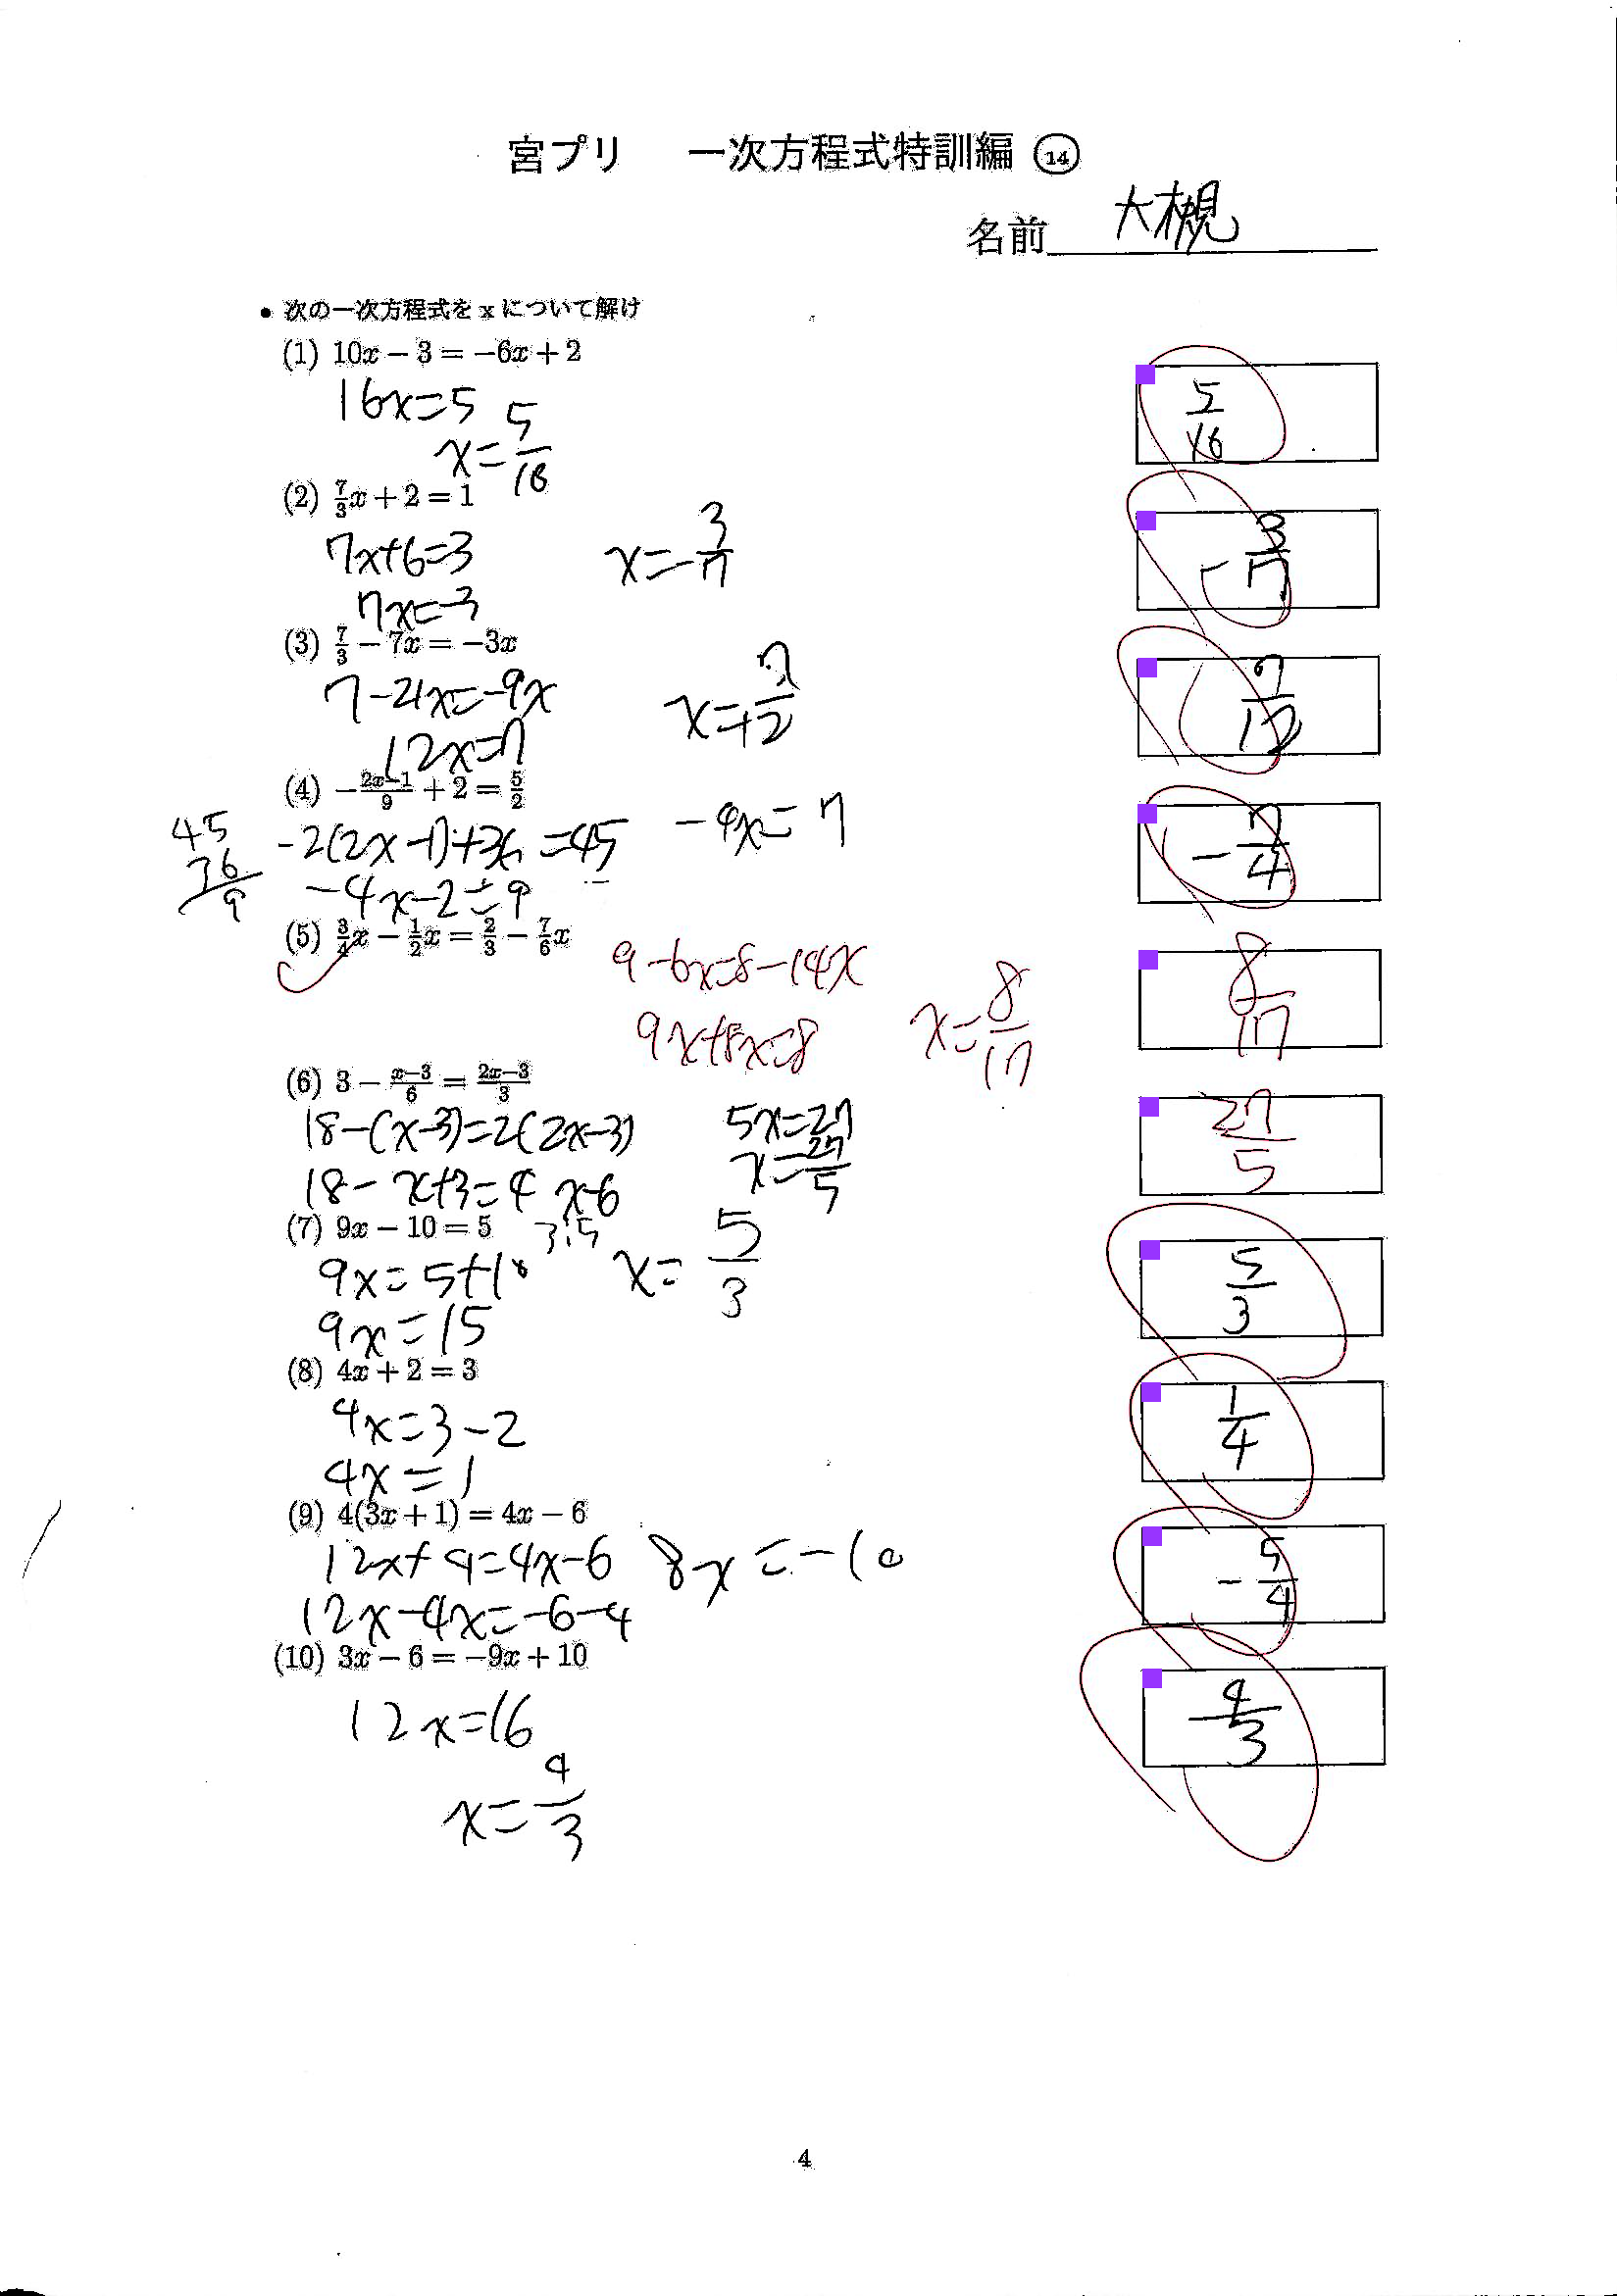 宮プリ 一次方程式特訓編 ⑭
名前 大槻
• 次の一次方程式を x について解け
(1) 10x − 3 = −6x + 2
16x=5
x=5/16
5/16
(2) 7/3x + 2 = 1
7x+6=3
7x=-3
x=-3/7
-3/7
(3) 7/3 − 7x = −3x
7-21x=-9x
12x=7
x=7/12
7/12
(4) −(2x−1)/9 + 2 = 5/2
45
36
9
-2(2x-1)+36=45
-4x-2=9
-4x=7
-7/4
(5) 3/4x − 1/2x = 2/3 − 7/6x
9-6x=8-14x
9x+8x=8
x=8/17
8/17
(6) 3 − (x−3)/6 = (2x−3)/3
18-(x-3)=2(2x-3)
18-x+3=4x-6
5x=27
x=27/5
27/5
(7) 9x − 10 = 5
9x=5+10
9x=15
x=5/3
5/3
(8) 4x + 2 = 3
4x=3-2
4x=1
1/4
(9) 4(3x + 1) = 4x − 6
12x+4=4x-6
12x-4x=-6-4
8x=-10
-5/4
(10) 3x − 6 = −9x + 10
12x=16
x=4/3
4/3
4